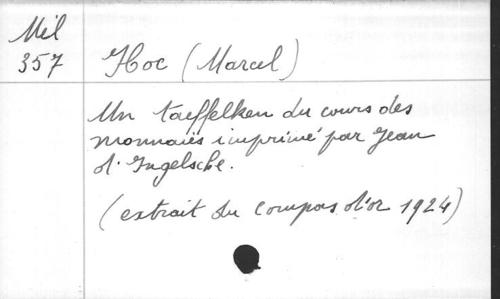 Mil
357 Hoc (Marcel)
Un taeffelken du cours des
monnaies imprimé par Jean
d'Ingelsche.
(extrait du Compas d'or 1924)